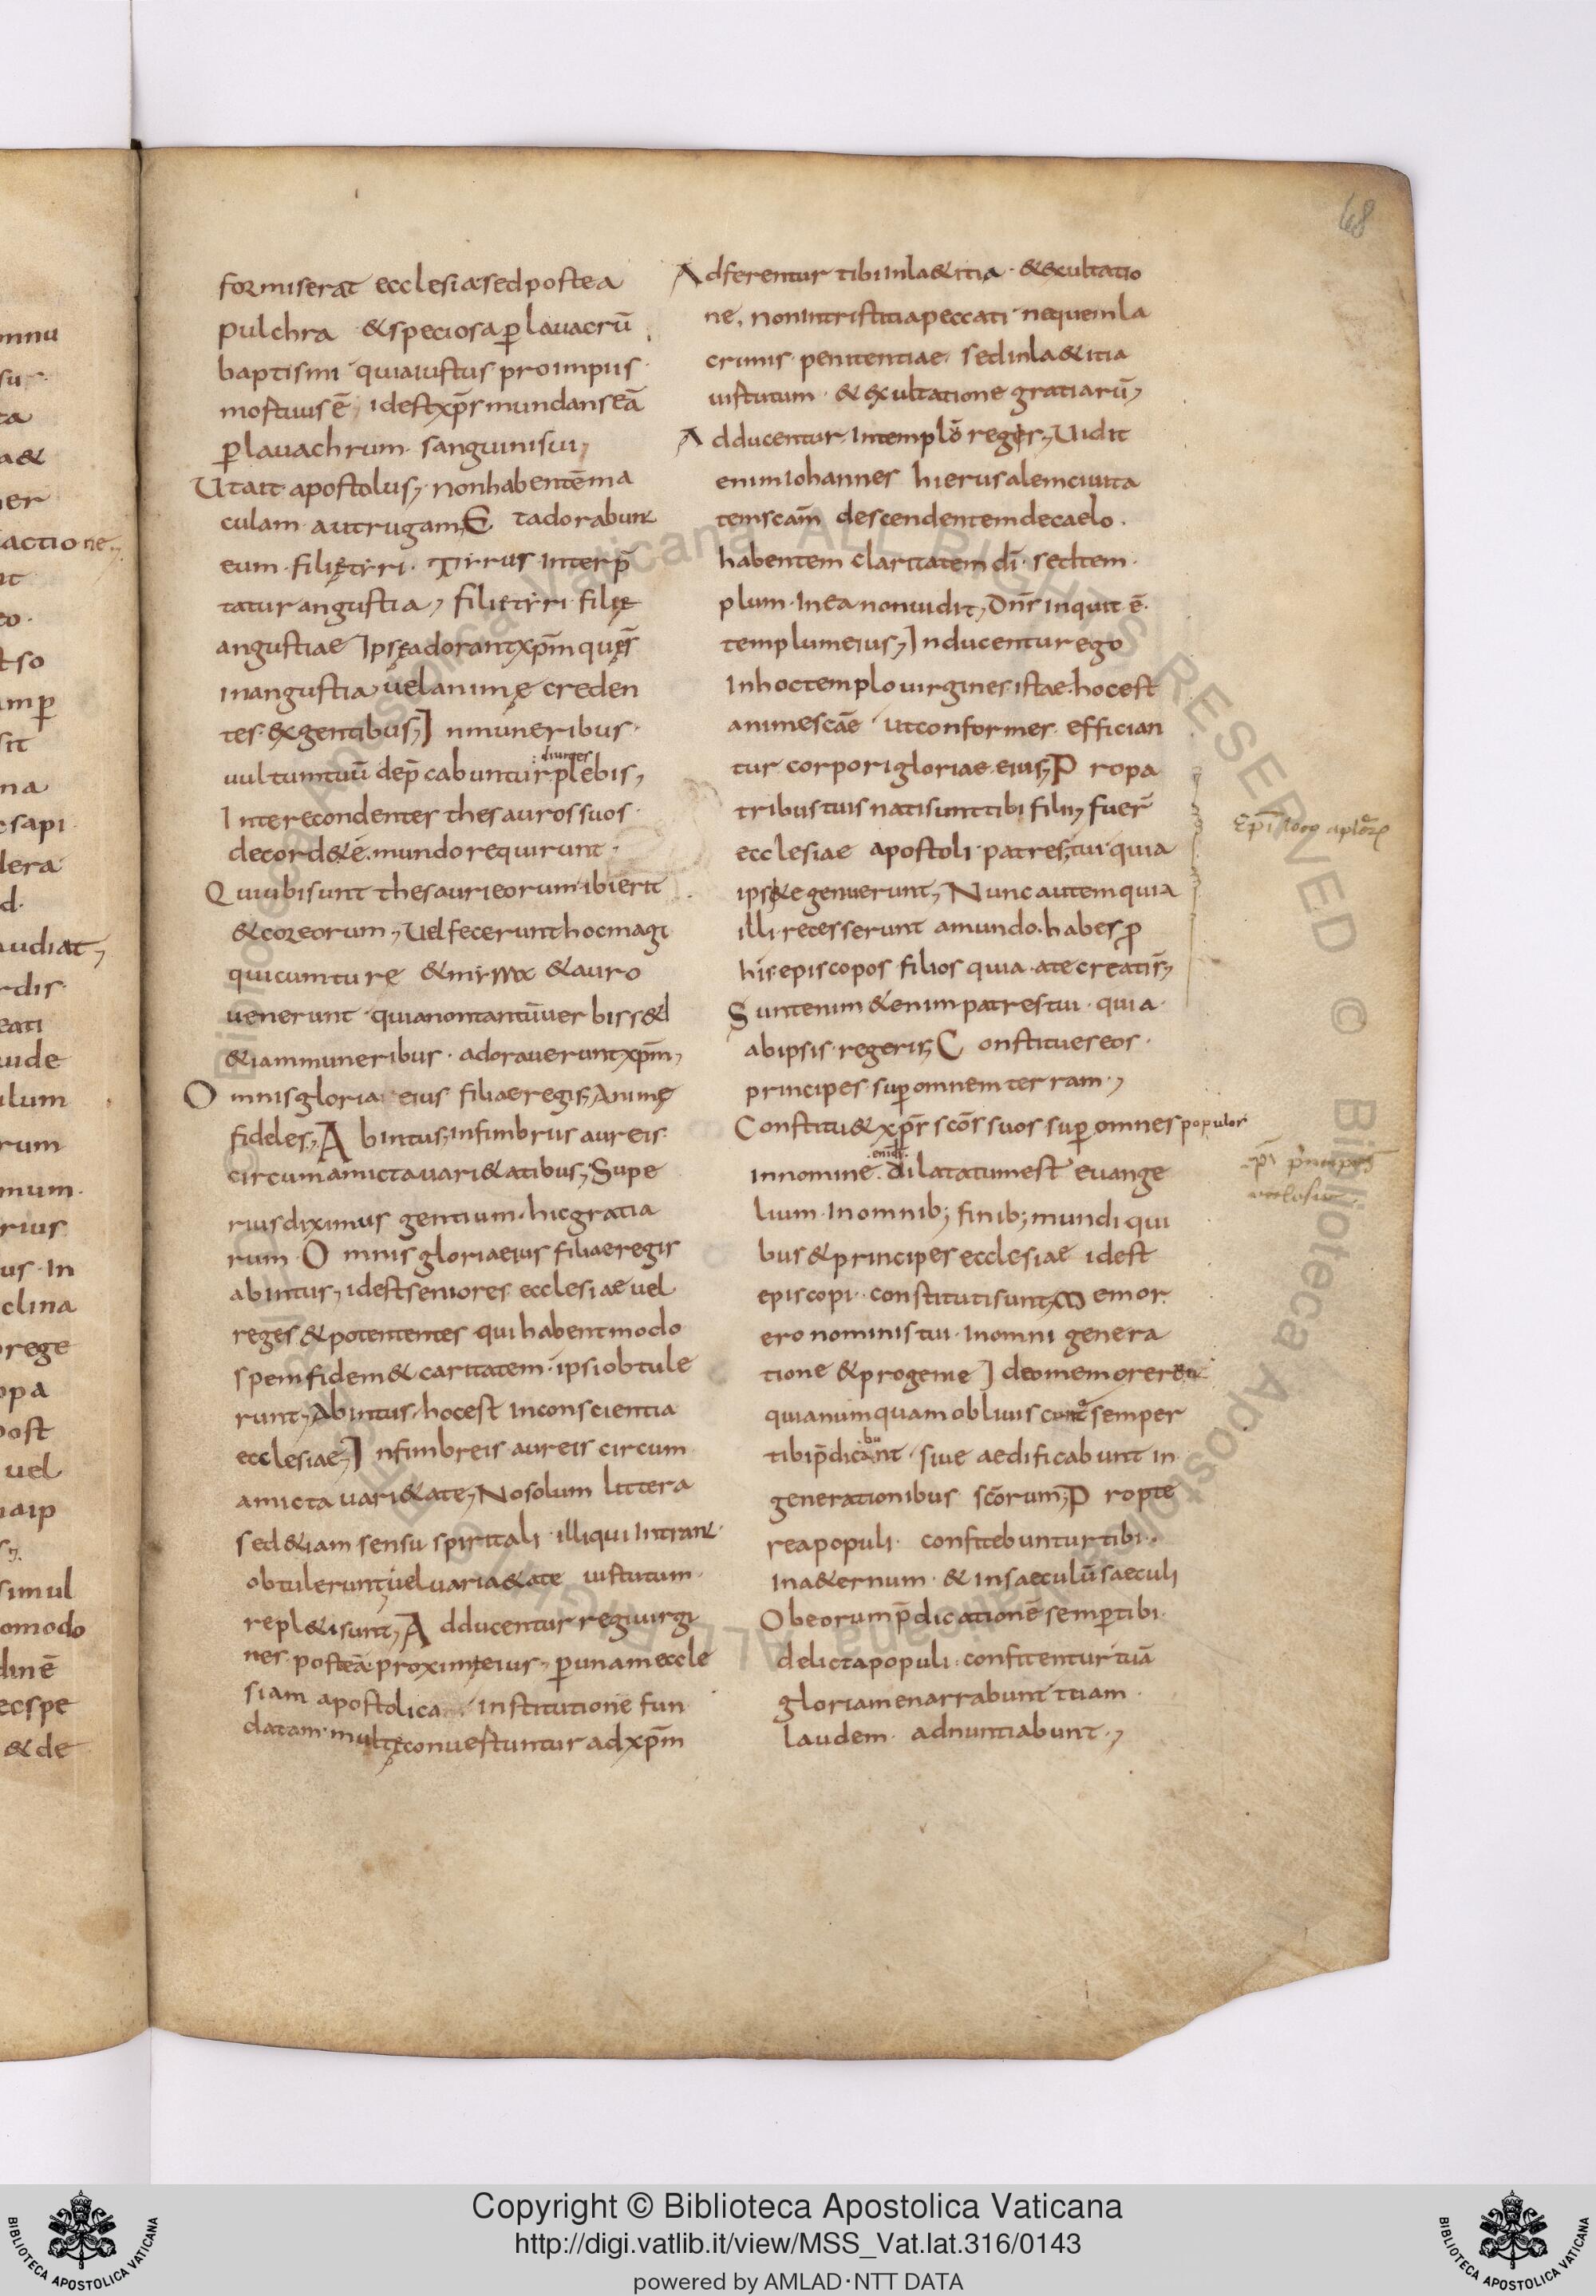 48
formiserat ecclesiæ sed postea
pulchra & speciosa ꝑ lauacrū
baptismi quia iustus pro impiis
mostuus ē, id est xp̄s mundans eā
ꝑ lauachrum sanguinis sui,
Ut ait apostolus, non habentē ma
culam aut rugam, Et adorabunt
eum filię tyri. Tyrrus interp̄
tatur angustia, filię tyri filię
angustiae Ipsę adorant xp̄m quęs̄
in angustia uel animę creden
tes ex gentibus, In muneribus
diuites
uultum tuū dep̄cabuntur plebis,
Inte recondentes thesauros suos
decord&é. mundo requirunt
Qui ubi sunt thesauri eorum ibi erit
& cor eorum, Uel fecerunt hoc magi
qui cum ture & myrra & auro
uenerunt quia non tantū uerbis s&d
&iam muneribus adorauerunt xp̄m,
Omnis gloria eius filiae regis, Animę
fideles, Ab intus, in fimbriis aureis
circumamicta uari&atibus, Supe
rius diximus gentium hic gratia
rum Omnis gloria eius filiae regis
ab intus, id est seniores ecclesiae uel
reges & potententes qui habent modo
spem fidem & caritatem ipsi obtule
runt, Ab intus, hoc est in conscientia
ecclesiae, In fimbreis aureis circum
amicta uari&ate, No solum littera
sed &iam sensu spiritali illi qui intrant
obtulerunt, uel uaria&ate uistutum
repl&i sunt, Adducentur regi uirgi
nes posteā proximę eius, ꝑ unam eccle
siam apostolica institutione fun
datam multę conuestuntur ad xp̄m
Adferentur tibi in la&itia & exultatio
ne, non in tristitia peccati neque in la
crimis penitentiae sed in la&itia
uistutum & exultatione gratiarū,
Adducentur in templo regis, Uidit
enim iohannes hierusalem ciuita
tem scām descendentem de caelo.
habentem claritatem dī sed tem
plum in ea non uidit, Dn̄s inquit ē
templum eius, Inducentur ego
in hoc templo uirgines istae. hoc est
anime scāe ut conformes effician
tur corpori gloriae eius, Pro pa
tribus tuis nati sunt tibi filii, fuer̄
ecclesiae apostoli patres, tui quia
ips&e genuerunt, Nunc autem quia
illi recesserunt a mundo. habes ꝓ
his episcopos filios quia a te creati s̄,
Sunt enim & enim patres tui quia
ab ipsis regeris, Constitues eos
principes suꝑ omnem terram,
Constitu& xp̄s scōs suos suꝑ omnes populos
enim
in nomine. dī dilatatum est euange
lium in omnib; finib; mundi qui
bus & principes ecclesiae id est
episcopi constituti sunt, Memor
ero nominis tui in omni genera
tione & progenie Ideo memorer&ur
quia numquam obliuiscunt semper
bu
tibi p̄dicant siue aedificabunt in
generationibus scōrum, Propte
rea populi confitebuntur tibi.
in a&ernum & in saeculū saeculi
Ob eorum p̄dicationē semꝑ tibi
delicta populi confitentur tuā
gloriam enarrabunt tuam
laudem adnuntiabunt,
Copyright © Biblioteca Apostolica Vaticana
http://digi.vatlib.it/view/MSS_Vat.lat.316/0143
powered by AMLAD·NTT DATA
BIBLIOTECA APOSTOLICA VATICANA
BIBLIOTECA APOSTOLICA VATICANA